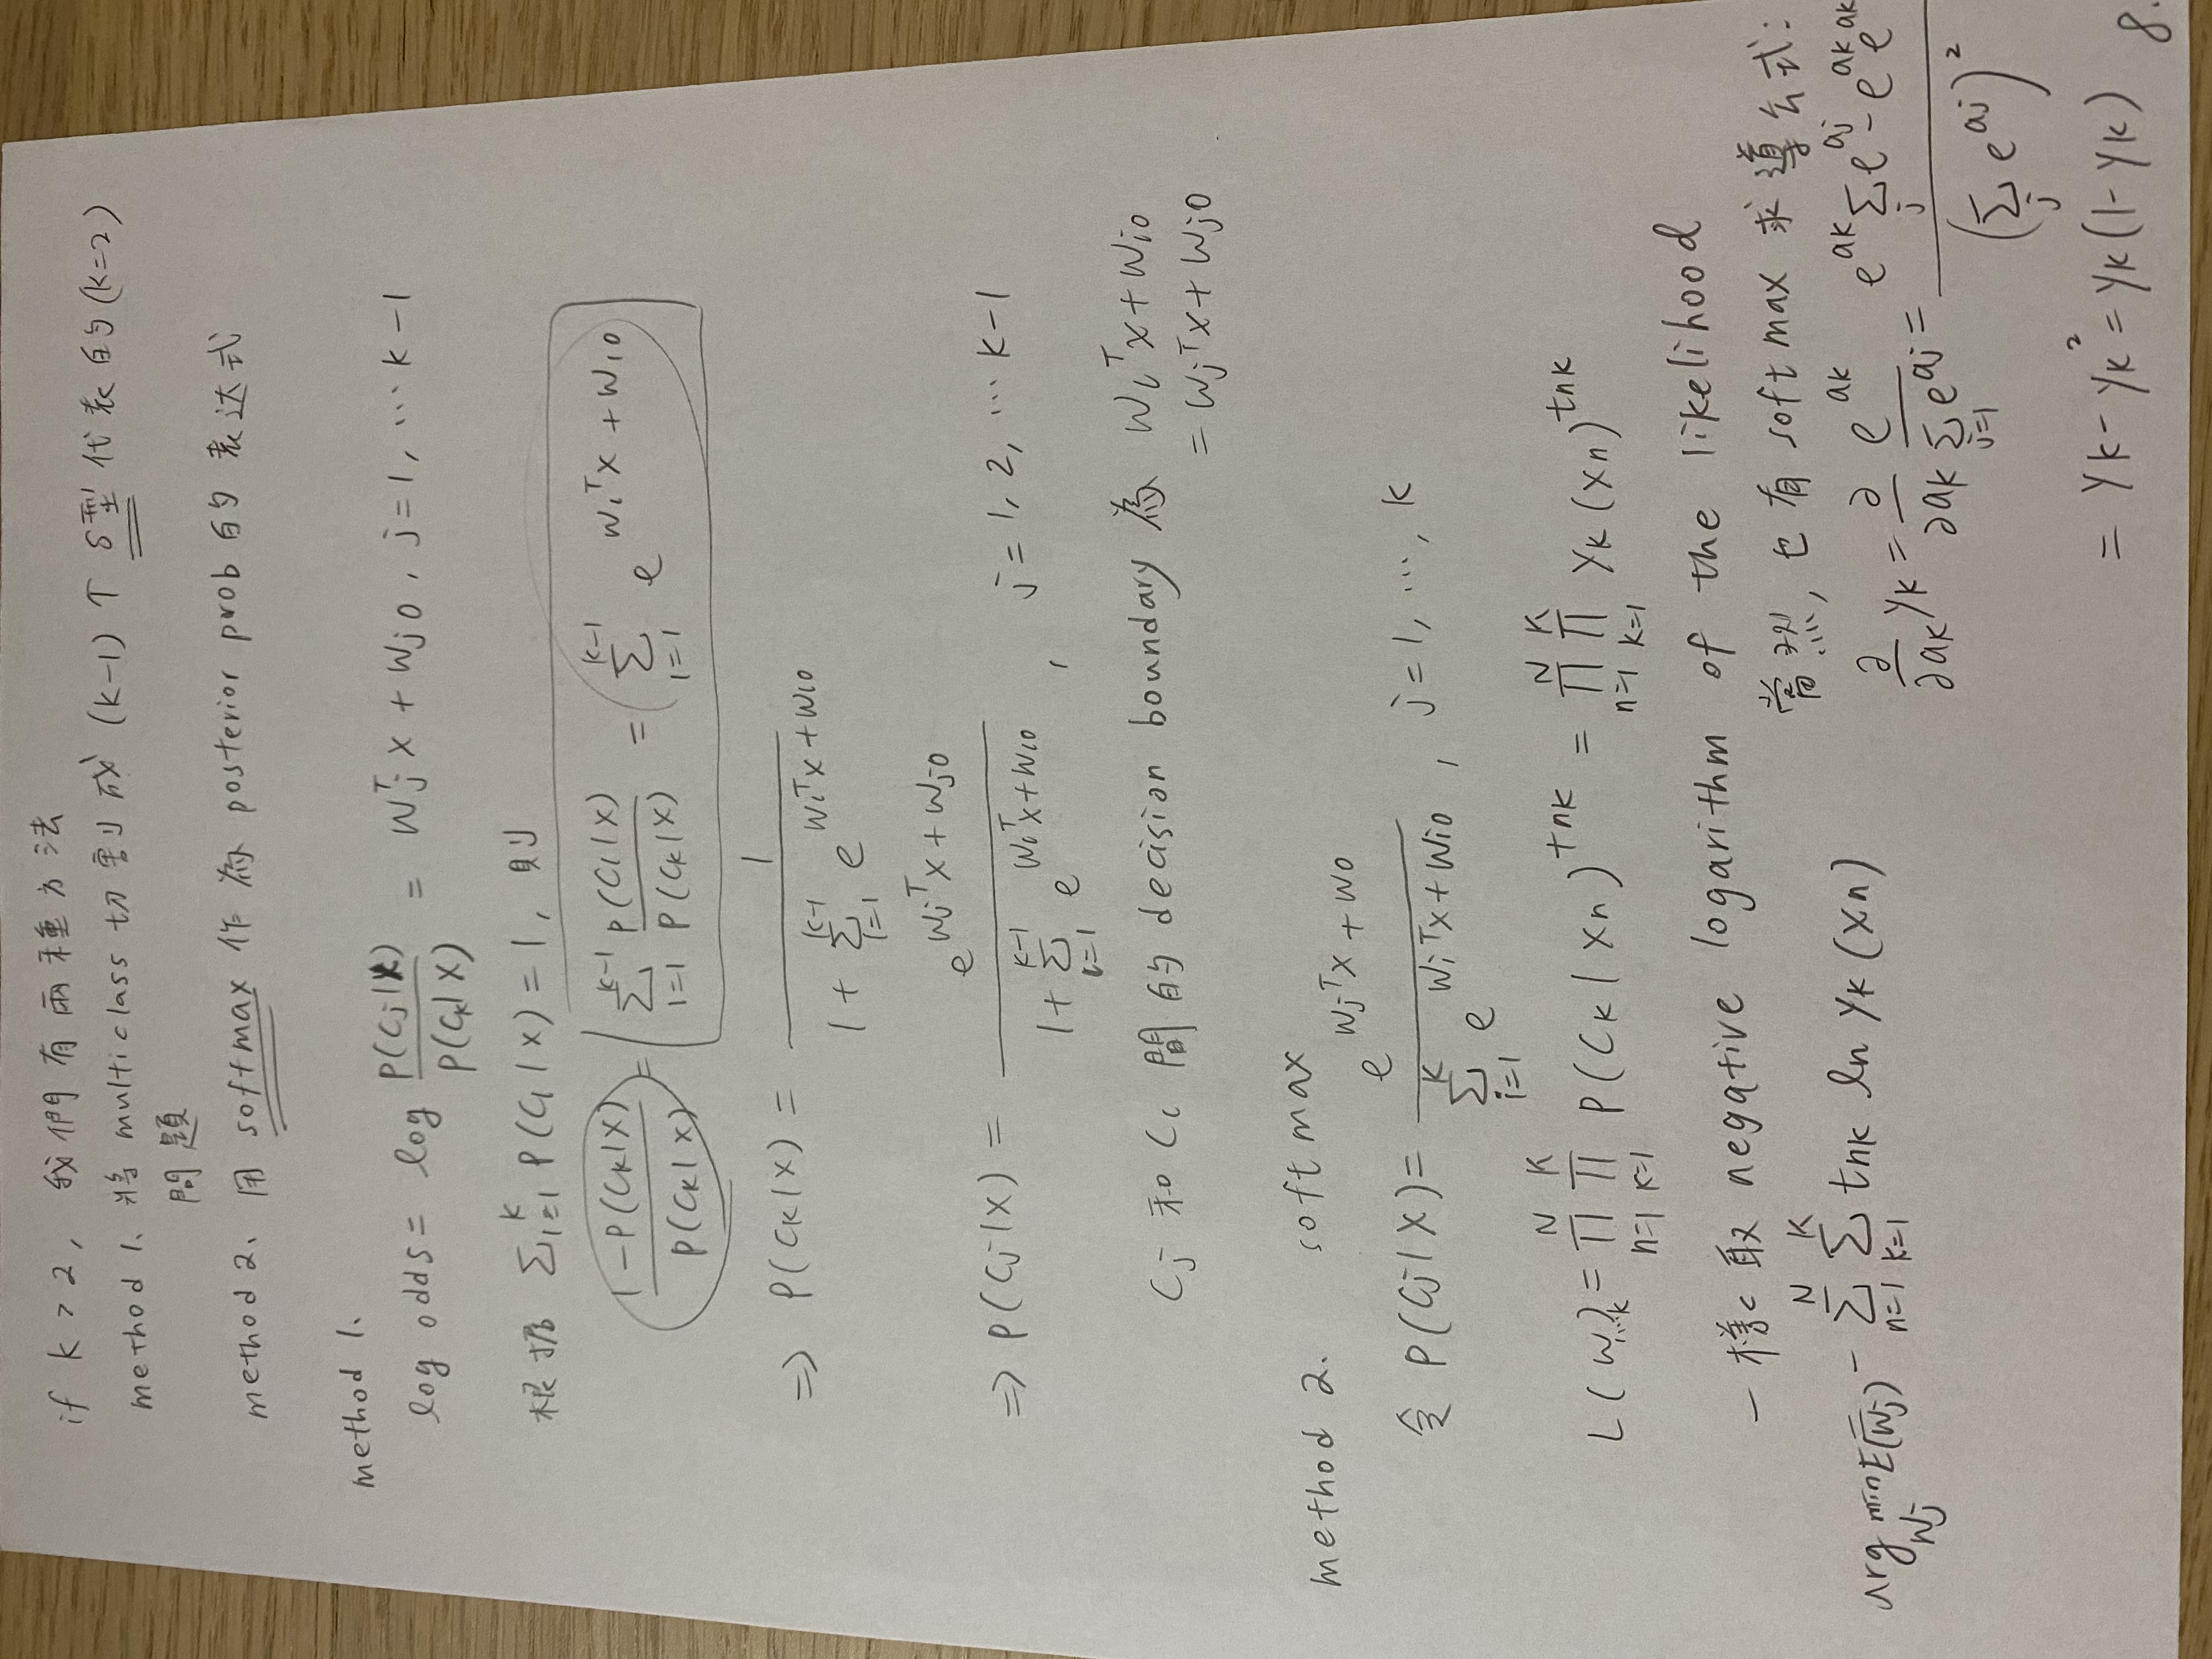 if K > 2, 我們有兩種方法
method 1. 將 multiclass 切割成 (K-1) 个 S型 代表的 (K=2)
問題
method 2. 用 softmax 作為 posterior prob 的 表达式
method 1.
log odds = log P(Cj|X) / P(Ck|X) = Wj^T X + Wj0, j=1, … K-1
根据 Σ_{i=1}^{K} P(Ci|X) = 1, 則
(1-P(Ck|X)) / P(Ck|X) = Σ_{i=1}^{K-1} P(Ci|X) / P(Ck|X) = Σ_{i=1}^{K-1} e^{Wi^T X + Wi0}
=> P(Ck|X) = 1 / (1 + Σ_{i=1}^{K-1} e^{Wi^T X + Wi0})
=> P(Cj|X) = e^{Wj^T X + Wj0} / (1 + Σ_{i=1}^{K-1} e^{Wi^T X + Wi0}), j = 1, 2, … K-1
Cj 和 Ci 間的 decision boundary 為 Wi^T X + Wi0
= Wj^T X + Wj0
method 2. softmax
令 P(Cj|X) = e^{Wj^T X + W0} / Σ_{i=1}^{K} e^{Wi^T X + Wi0}, j=1, …, K
L(W…k) = Π_{n=1}^{N} Π_{K=1}^{K} P(Ck|Xn)^{tnk} = Π_{n=1}^{N} Π_{K=1}^{K} Yk(Xn)^{tnk}
一樣取 negative logarithm of the likelihood
arg min_{Wj} E(Wj) - Σ_{n=1}^{N} Σ_{K=1}^{K} tnk ln Yk(Xn)
當然, 也有 softmax 求導公式:
∂/∂ak Yk = ∂/∂ak e^{ak} / Σ_{j=1} e^{aj} = (e^{ak} Σ_j e^{aj} - e^{ak} e^{ak}) / (Σ_j e^{aj})^2
= Yk - Yk^2 = Yk(1-Yk)
8.